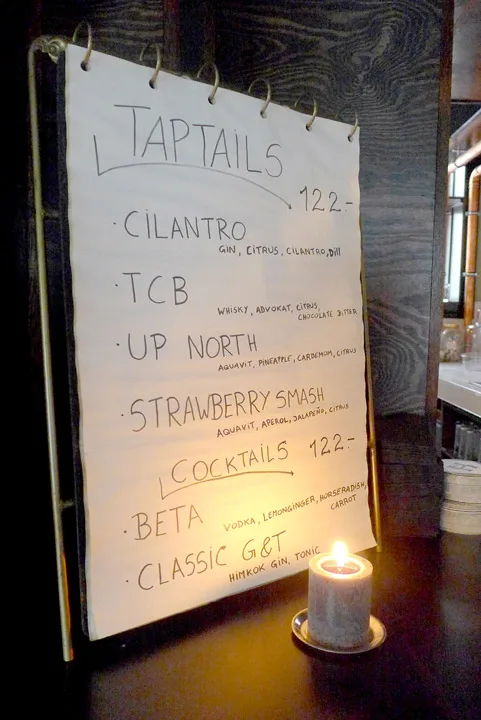 TAPTAILS
122.-
· CILANTRO
GIN, CITRUS, CILANTRO, Dill
· TCB
WHISKY, ADVOKAT, CITRUS,
CHOCOLATE BITTER
· UP NORTH
AQUAVIT, PINEAPPLE, CARDEMOM, CITRUS
· STRAWBERRY SMASH
AQUAVIT, APEROL, JALAPEÑO, CITRUS
COCKTAILS 122.-
· BETA
VODKA, LEMONGINGER, HORSERADISH,
CARROT
· CLASSIC G&T
HIMKOK GIN, TONIC